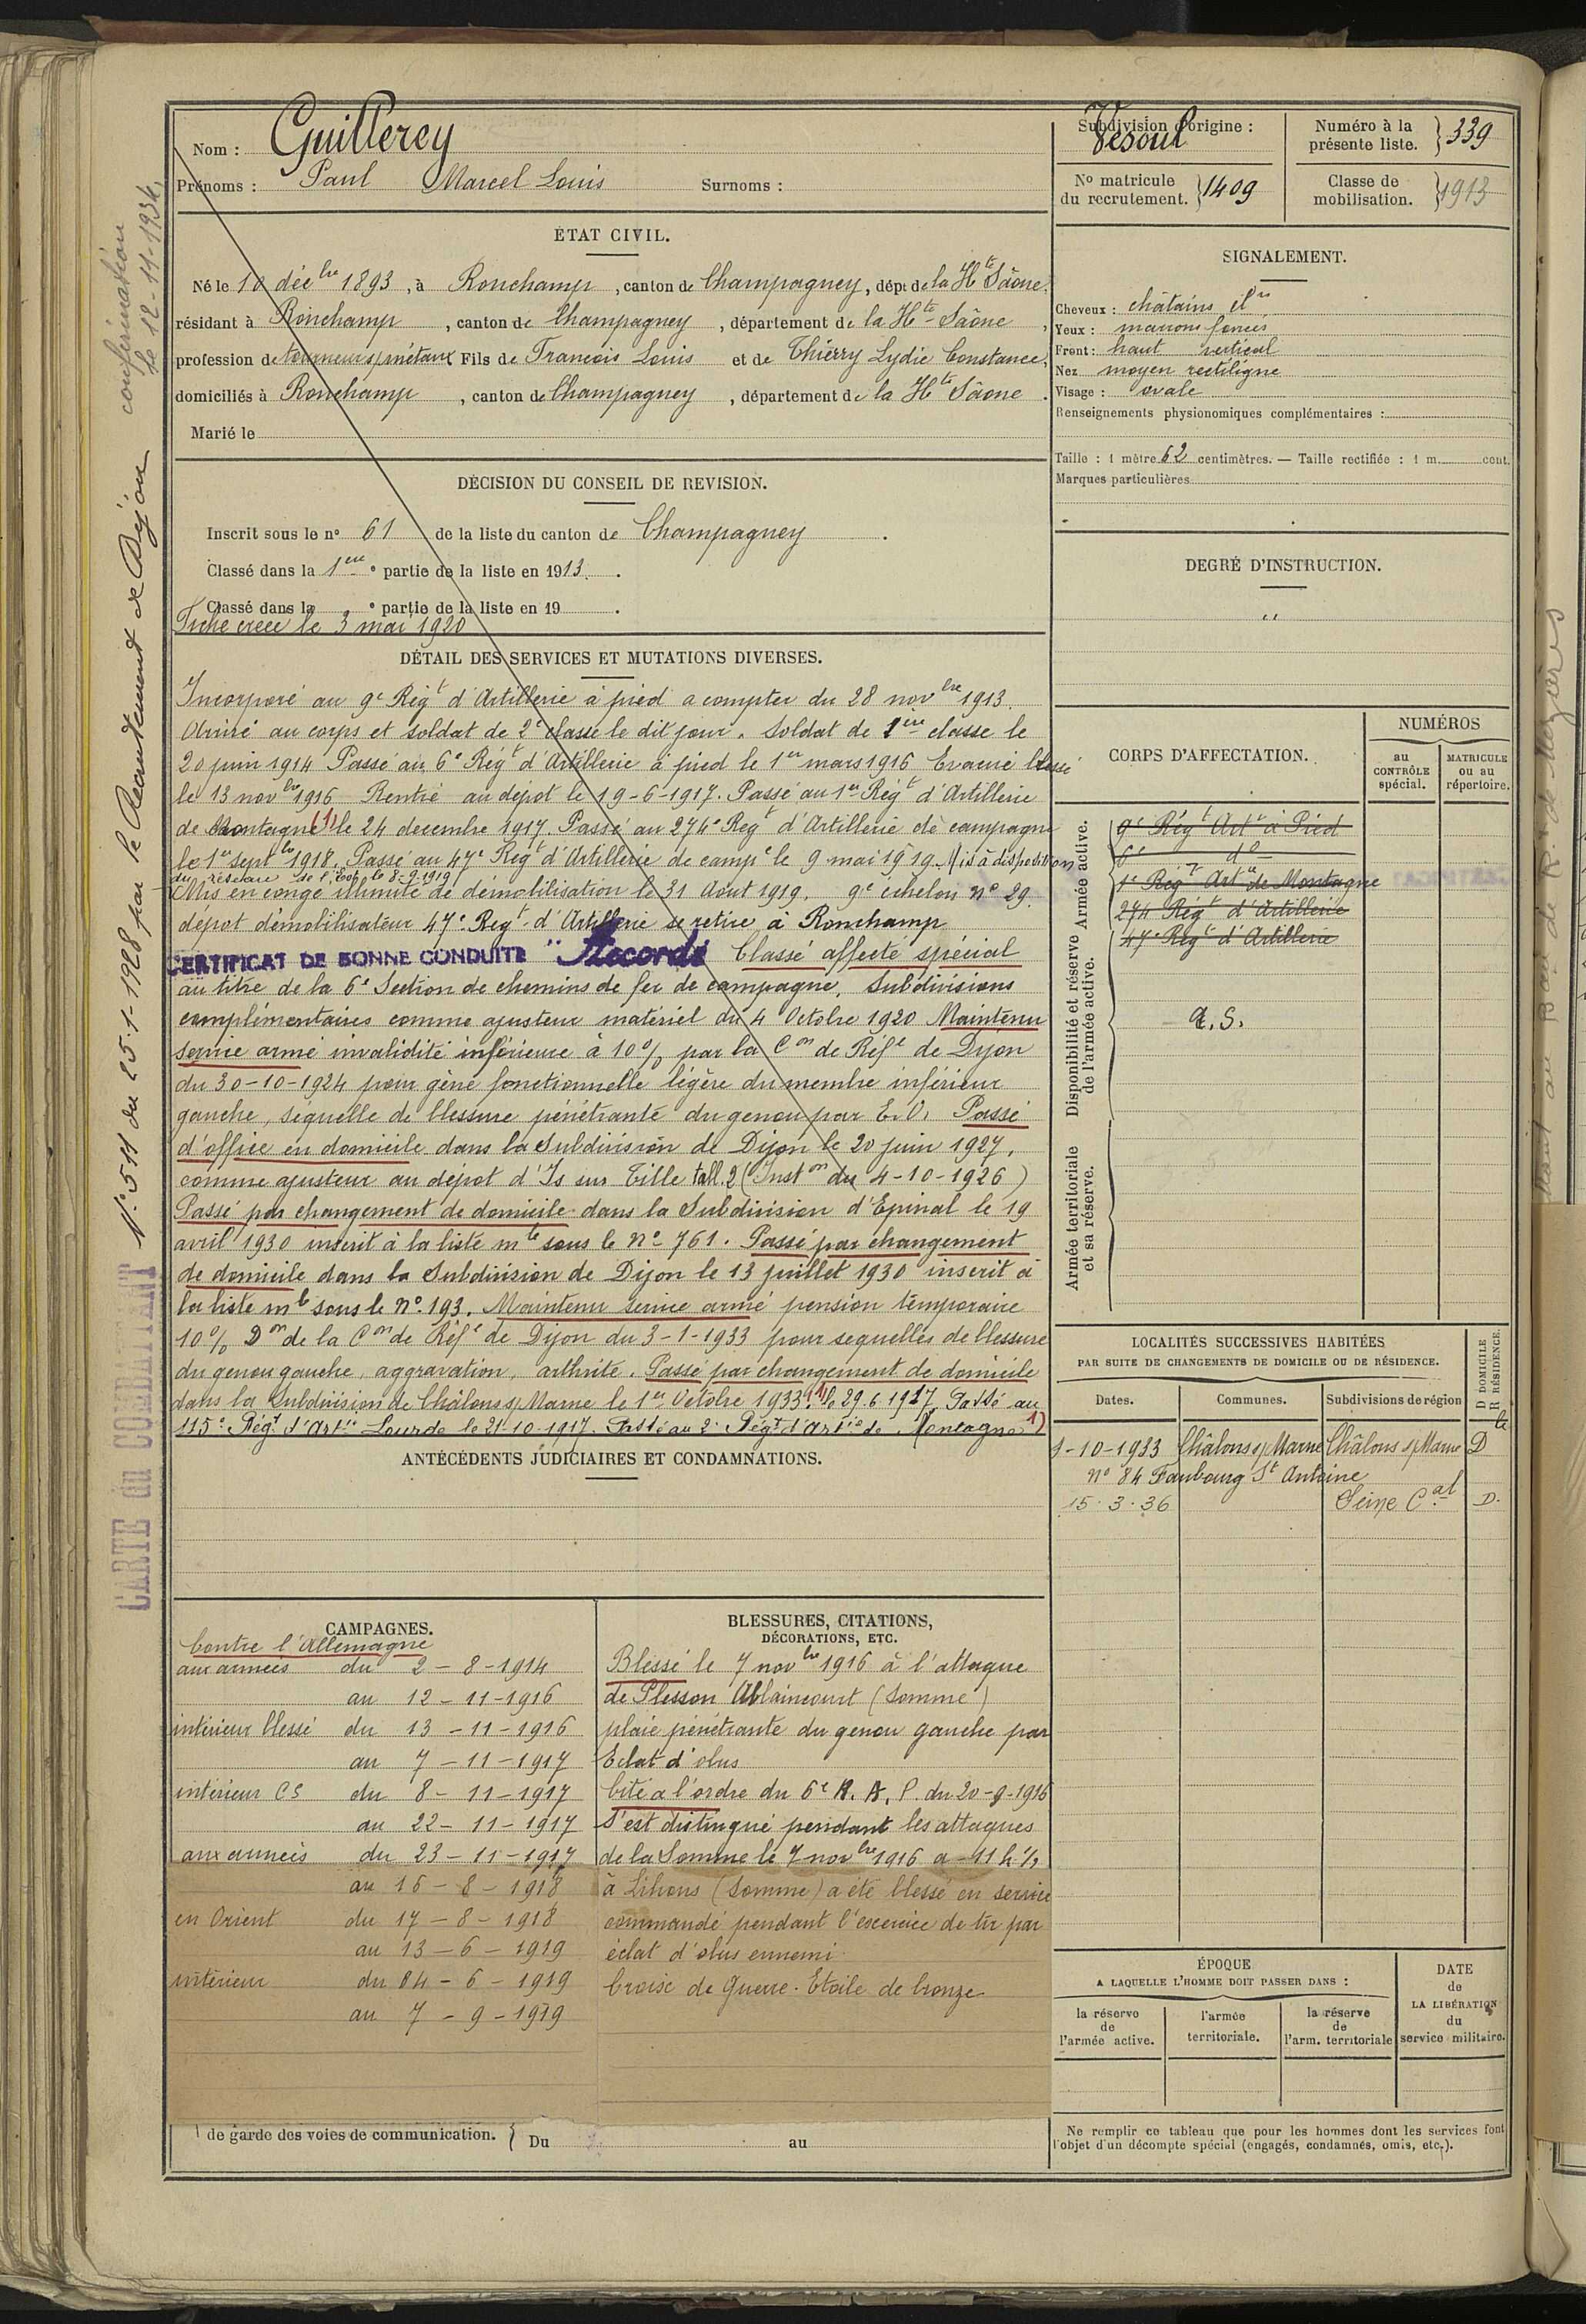 Nom : Guillerey
Prénoms : Paul Marcel Louis Surnoms :
Subdivision d'origine : Vesoul
Numéro à la présente liste. 339
No matricule du recrutement. 1409
Classe de mobilisation. 1913
ÉTAT CIVIL.
Né le 10 déc bre 1893, à Ronchamp, canton de Champagney, dépt de la Hte Saône.
résidant à Ronchamp, canton de Champagney, département de la Hte Saône,
profession de tourneur s/métaux Fils de François Louis et de Thierry Lydie Constance,
domiciliés à Ronchamp, canton de Champagney, département de la Hte Saône.
Marié le
DÉCISION DU CONSEIL DE REVISION.
Inscrit sous le no 61 de la liste du canton de Champagney.
Classé dans la 1ere e partie de la liste en 1913.
Classé dans la e partie de la liste en 19 .
Fiche créée le 3 mai 1920
DÉTAIL DES SERVICES ET MUTATIONS DIVERSES.
Incorporé au 9e Régt d'Artillerie à pied a compter du 28 nov bre 1913.
Arrivé au corps et soldat de 2e classe le dit jour. Soldat de 1ère classe le
20 juin 1914 Passé au 6e Régt d'Artillerie à pied le 1er mars 1916 Evacué blessé
le 13 nov bre 1916 Rentré au dépot le 19-6-1917. Passé au 1er Régt d'Artillerie
de Montagne (1) le 24 decembre 1917. Passé au 274e Regt d'Artillerie de campagne
le 1er sept bre 1918. Passé au 47e Regt d'Artillerie de campe le 9 mai 1919. Mis à disposition
du réseau de l'Est le 8-9-1919
Mis en congé illimité de démobilisation le 31 Août 1919. 9e échelon no 29.
dépot démobilisateur 47e Regt d'Artillerie se retire à Ronchamp
CERTIFICAT DE BONNE CONDUITE " Accordé Classé affecté spécial
au titre de la 6e Section de chemins de fer de campagne, Subdivisions
complémentaires comme ajusteur matériel du 4 Octobre 1920 Maintenu
service armé invalidité inférieure à 10% par la Con de Réfe de Dijon
du 30-10-1924 pour gêne fonctionnelle légère du membre inférieur
gauche, séquelle de blessure pénétrante du genou par E.O. Passé
d'office en domicile dans la Subdivision de Dijon le 20 juin 1927,
comme ajusteur au dépot d'Is sur Tille tabl. 2 (Inston du 4-10-1926)
Passé par changement de domicile dans la Subdivision d'Epinal le 19
avril 1930 inscrit à la liste mle sous le No 761. Passé par changement
de domicile dans la Subdivision de Dijon le 13 juillet 1930 inscrit à
la liste mle sous le No 193. Maintenu service armé pension temporaire
10% Don de la Con de Réfe de Dijon du 3-1-1933 pour sequelles de blessure
du genou gauche, aggravation, arthrite. Passé par changement de domicile
dans la Subdivision de Châlons s/ Marne le 1er Octobre 1933. (1) le 29.6.1917. Passé au
115e Régt d'Artie Lourde le 21-10-1917. Passé au 2e Régt d'Artie de Montagne 1)
ANTÉCÉDENTS JUDICIAIRES ET CONDAMNATIONS.
CAMPAGNES.
Contre l'Allemagne
aux armées du 2-8-1914
au 12-11-1916
intérieur blessé du 13-11-1916
au 7-11-1917
intérieur CS du 8-11-1917
au 22-11-1917
aux armées du 23-11-1917
au 16-8-1918
en Orient du 17-8-1918
au 13-6-1919
intérieur du 14-6-1919
au 7-9-1919
BLESSURES, CITATIONS,
DÉCORATIONS, ETC.
Blessé le 7 nov bre 1916 à l'attaque
de Ablaincourt (Somme)
plaie pénétrante du genou gauche par
Eclat d'obus
Cité a l'ordre du 6e R. A. P. du 20-9-1916
S'est distingué pendant les attaques
de la Somme le 7 nov bre 1916 a 11 h ½
à Lihons (Somme) a été blessé en service
commandé pendant l'exercice de tir par
éclat d'obus ennemi.
Croix de Guerre. Etoile de bronze
de garde des voies de communication. Du au
SIGNALEMENT.
Cheveux : châtains
Yeux : marrons foncés
Front : haut vertical
Nez moyen rectiligne
Visage : ovale
Renseignements physionomiques complémentaires :
Taille : 1 mètre 62 centimètres. — Taille rectifiée : 1 m. cent.
Marques particulières
DEGRÉ D'INSTRUCTION.
"
CORPS D'AFFECTATION.
NUMÉROS
au CONTRÔLE spécial.
MATRICULE ou au répertoire.
Armée active.
9e Régt Artie à Pied
6e do
1e Régt Artie de Montagne
274 Régt d'Artillerie
47e Régt d'Artillerie
Disponibilité et réserve de l'armée active.
A.S.
Armée territoriale et sa réserve.
LOCALITÉS SUCCESSIVES HABITÉES
PAR SUITE DE CHANGEMENTS DE DOMICILE OU DE RÉSIDENCE.
Dates. Communes. Subdivisions de région D DOMICILE R RÉSIDENCE.
1-10-1933 Châlons s/ Marne Châlons s/ Marne D
no 84 Faubourg St Antoine
15.3.36 Seine Cal D.
ÉPOQUE
A LAQUELLE L'HOMME DOIT PASSER DANS :
la réserve de l'armée active.
l'armée territoriale.
la réserve de l'arm. territoriale
DATE de LA LIBÉRATION du service militaire.
Ne remplir ce tableau que pour les hommes dont les services font
l'objet d'un décompte spécial (engagés, condamnés, omis, etc.).
CARTE du COMBATTANT No 511 du 25-1-1928 par le Recrutement de Dijon
confirmation
le 12-11-1934